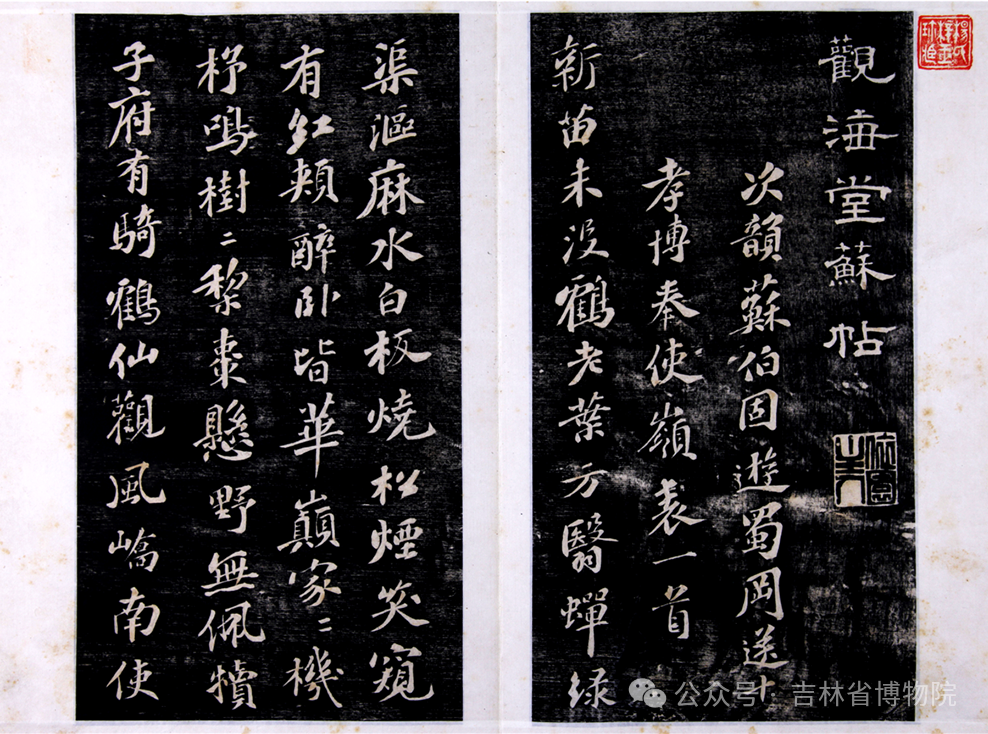 觀海堂蘇帖
次韻蘇伯固遊蜀岡送
孝博奉使嶺表一首
新苗未没鶴老葉方翳蟬緑
渠漚麻水白板燒松煙笑窺
有紅頰醉卧皆華巔家〻機
杼鳴樹〻棃棗懸野無佩犢
子府有騎鶴仙觀風嶠南使
公众号 · 吉林省博物院